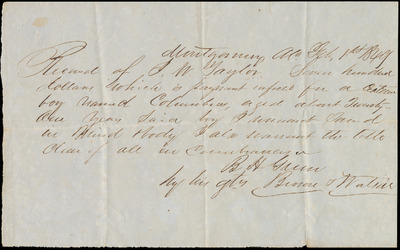 Montgomery Ala Feb, 1st 1849
Received of J. W. Taylor Seven hundred
dollars which is payment in full for a
boy named Columbus, aged about Twenty
One Years Said boy I warrant Sound
in Mind & body I also warrant the title
Clear of all in Cumbrances
B. H. Green
by his